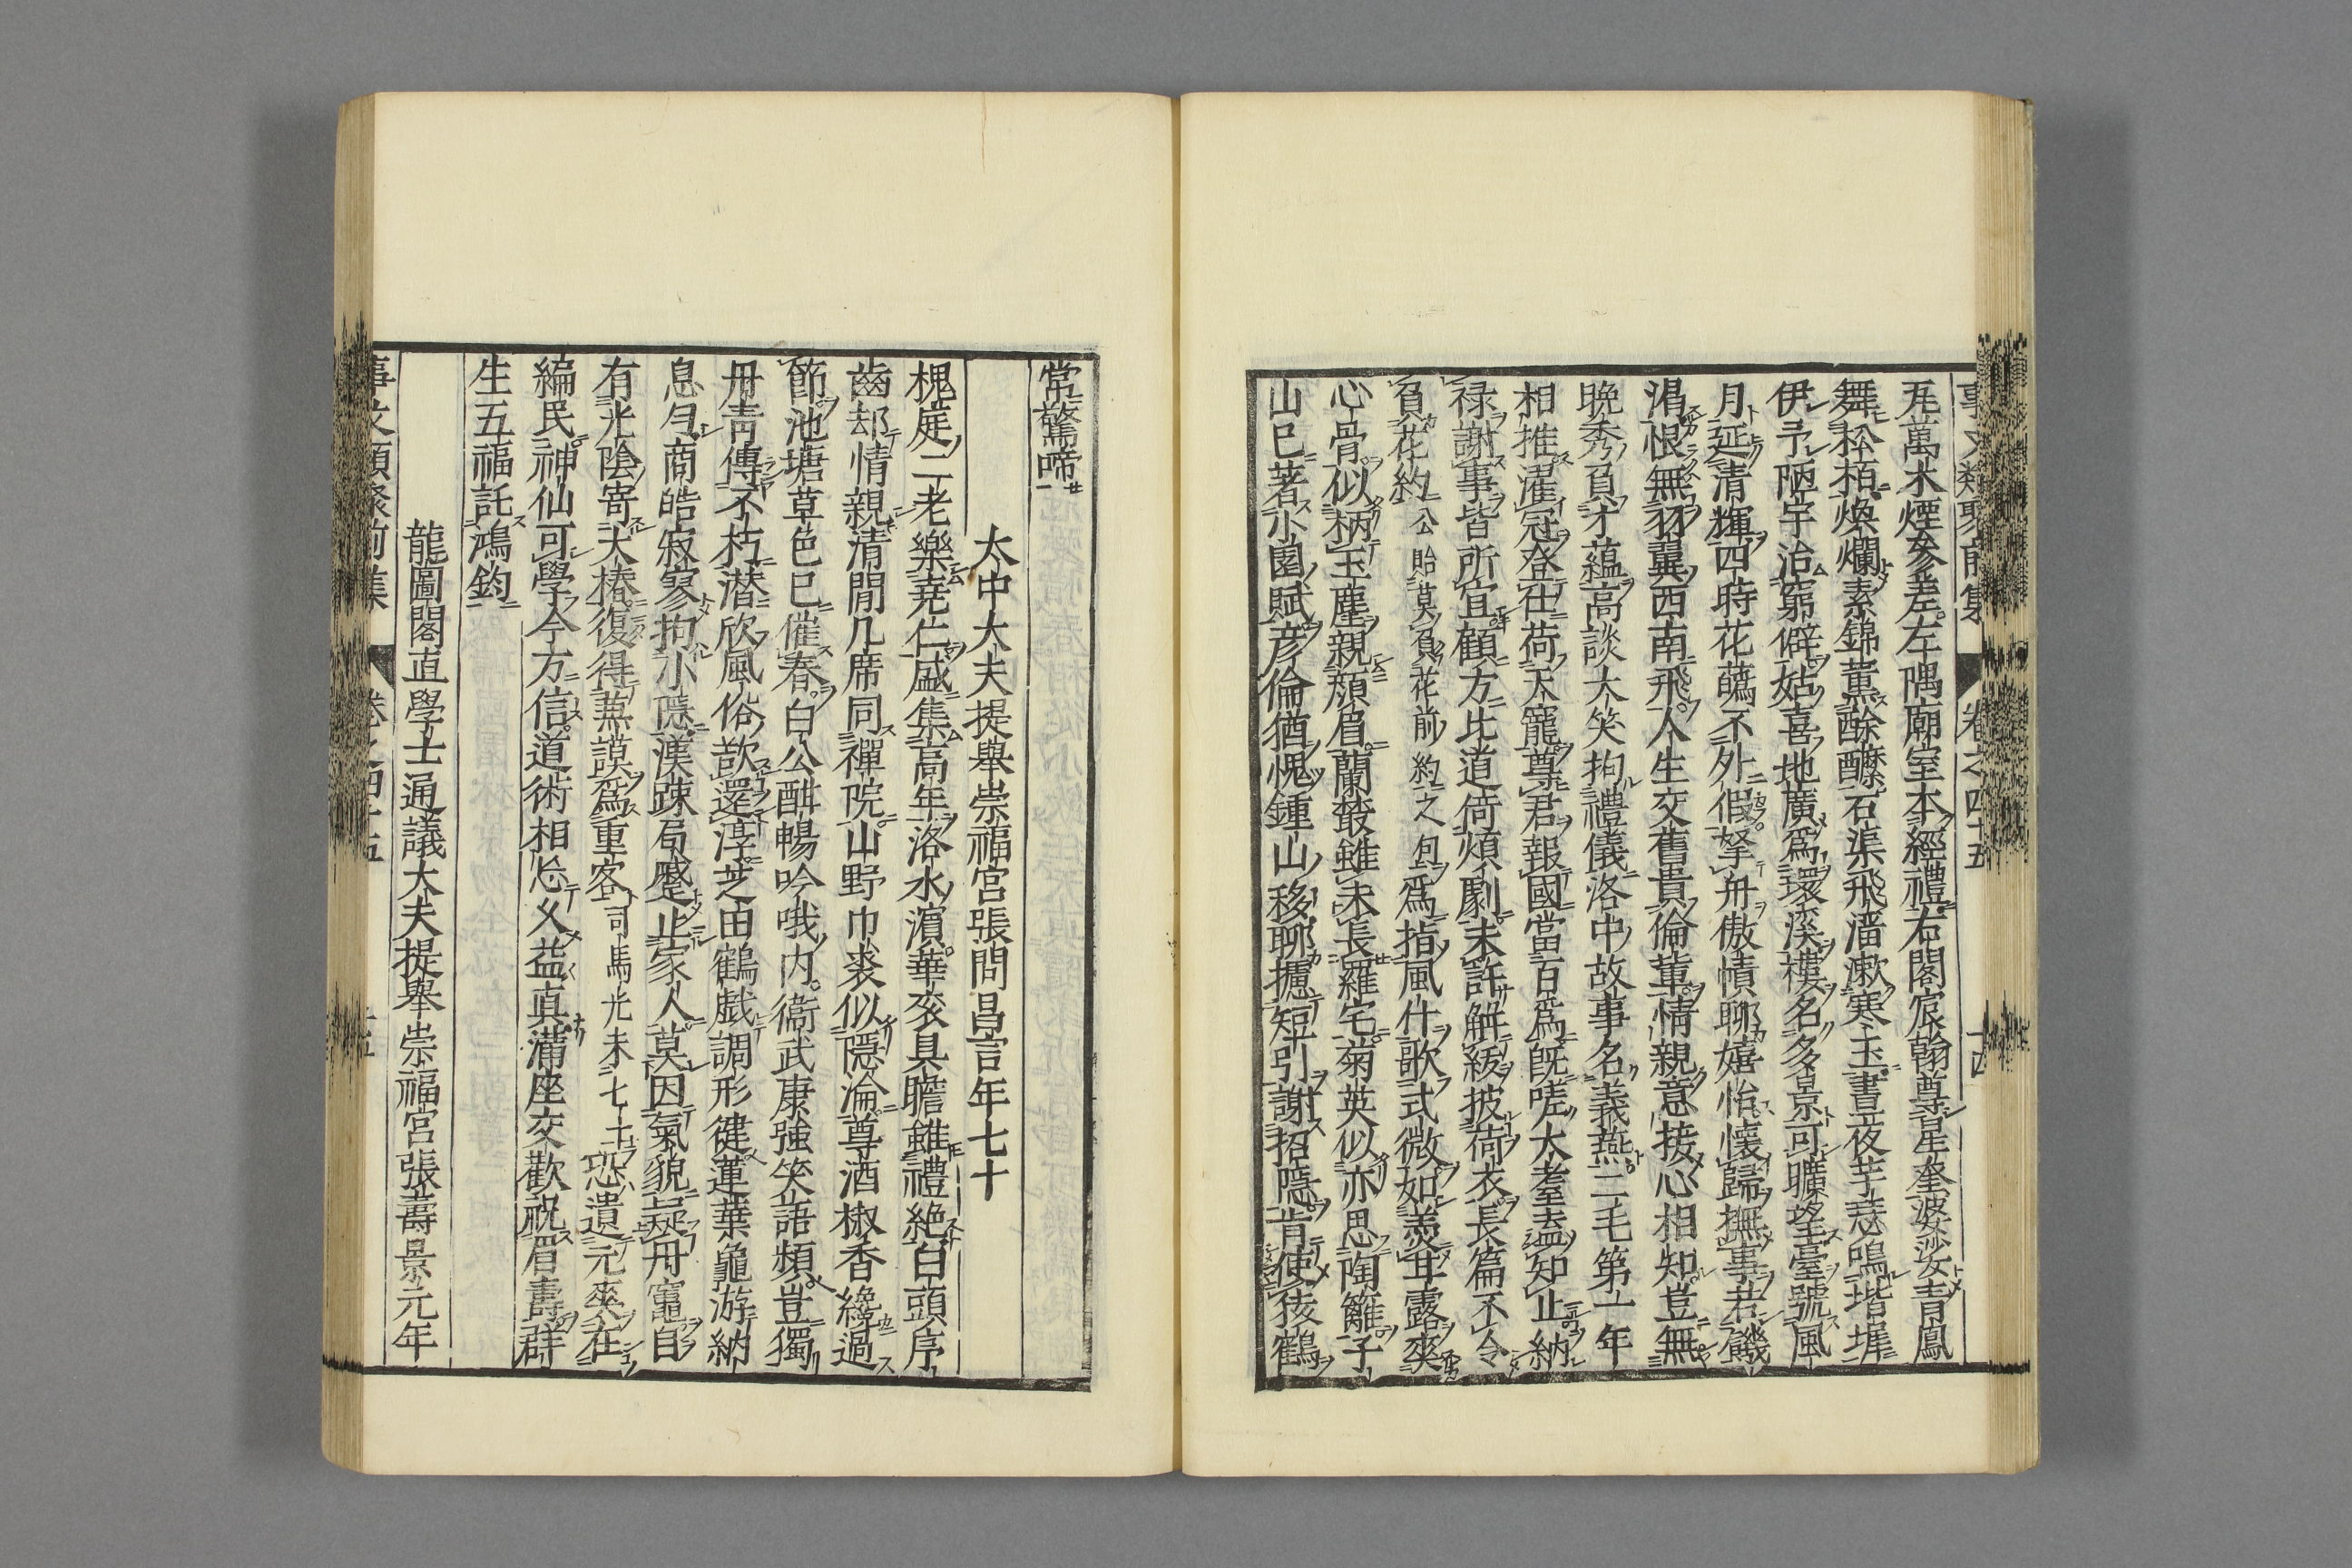 事文類聚前集 卷之四十五 十四
兀萬木煙參差左隅廟室本經禮右閣宸翰尊星奎婆娑青鳳
舞松栢煥爛素錦薰酴醾石渠飛溜漱寒玉晝夜竽瑟鳴堦墀
伊予陋宇治窮僻姑喜地廣爲環溪樓名多景可曠望臺號風
月延清輝四時花蘤不外假拏舟傲幘聊嬉怡懷歸撫事若饑
渴恨無羽翼西南飛人生交舊貴倫輩情親意接心相知豈無
晚秀負才蘊高談大笑拘禮儀洛中故事名義燕二毛第一年
相推濯冠登仕荷天寵尊君報國當百爲旣嗟大耋盍知止納
禄謝事皆所宜顧方比道倚煩劇未許觧綬披荷衣長篇不令
負花約公貽莫負花前約之句爲指風什歌式微如羨茸露爽
心骨似柄玉麈親顔眉蘭叢雖未長羅宅菊英似亦思陶籬子
山已著小園賦彦倫猶愧鍾山移聊攄短引謝招隱肯使猿鶴
常驚啼
太中大夫提舉崇福宮張問昌言年七十
槐庭二老樂堯仁盛集高年洛水濵華衮具瞻雖禮絶白頭序
齒却情親清閒几席同禪院山野巾裘似隱淪尊酒椒香纔過
節池塘草色已催春白公酣暢吟哦内衞武康強笑語頻豈獨
丹青傳不朽潜欣風俗歎還淳芝田鶴戯調形健蓮葉龜游納
息勻商皓寂寥拘小隱漢踈局蹙止家人莫因氣貌占丹竈自
有光陰寄大椿復得蕪謨爲重客司馬光未七十恐遺元爽在
編民神仙可學今方信道術相忘乆益真滿座交歡祝眉壽群
生五福託鴻鈞
龍圖閣直學士通議大夫提舉崇福宮張壽景元年
事文類聚前集 卷之四十五